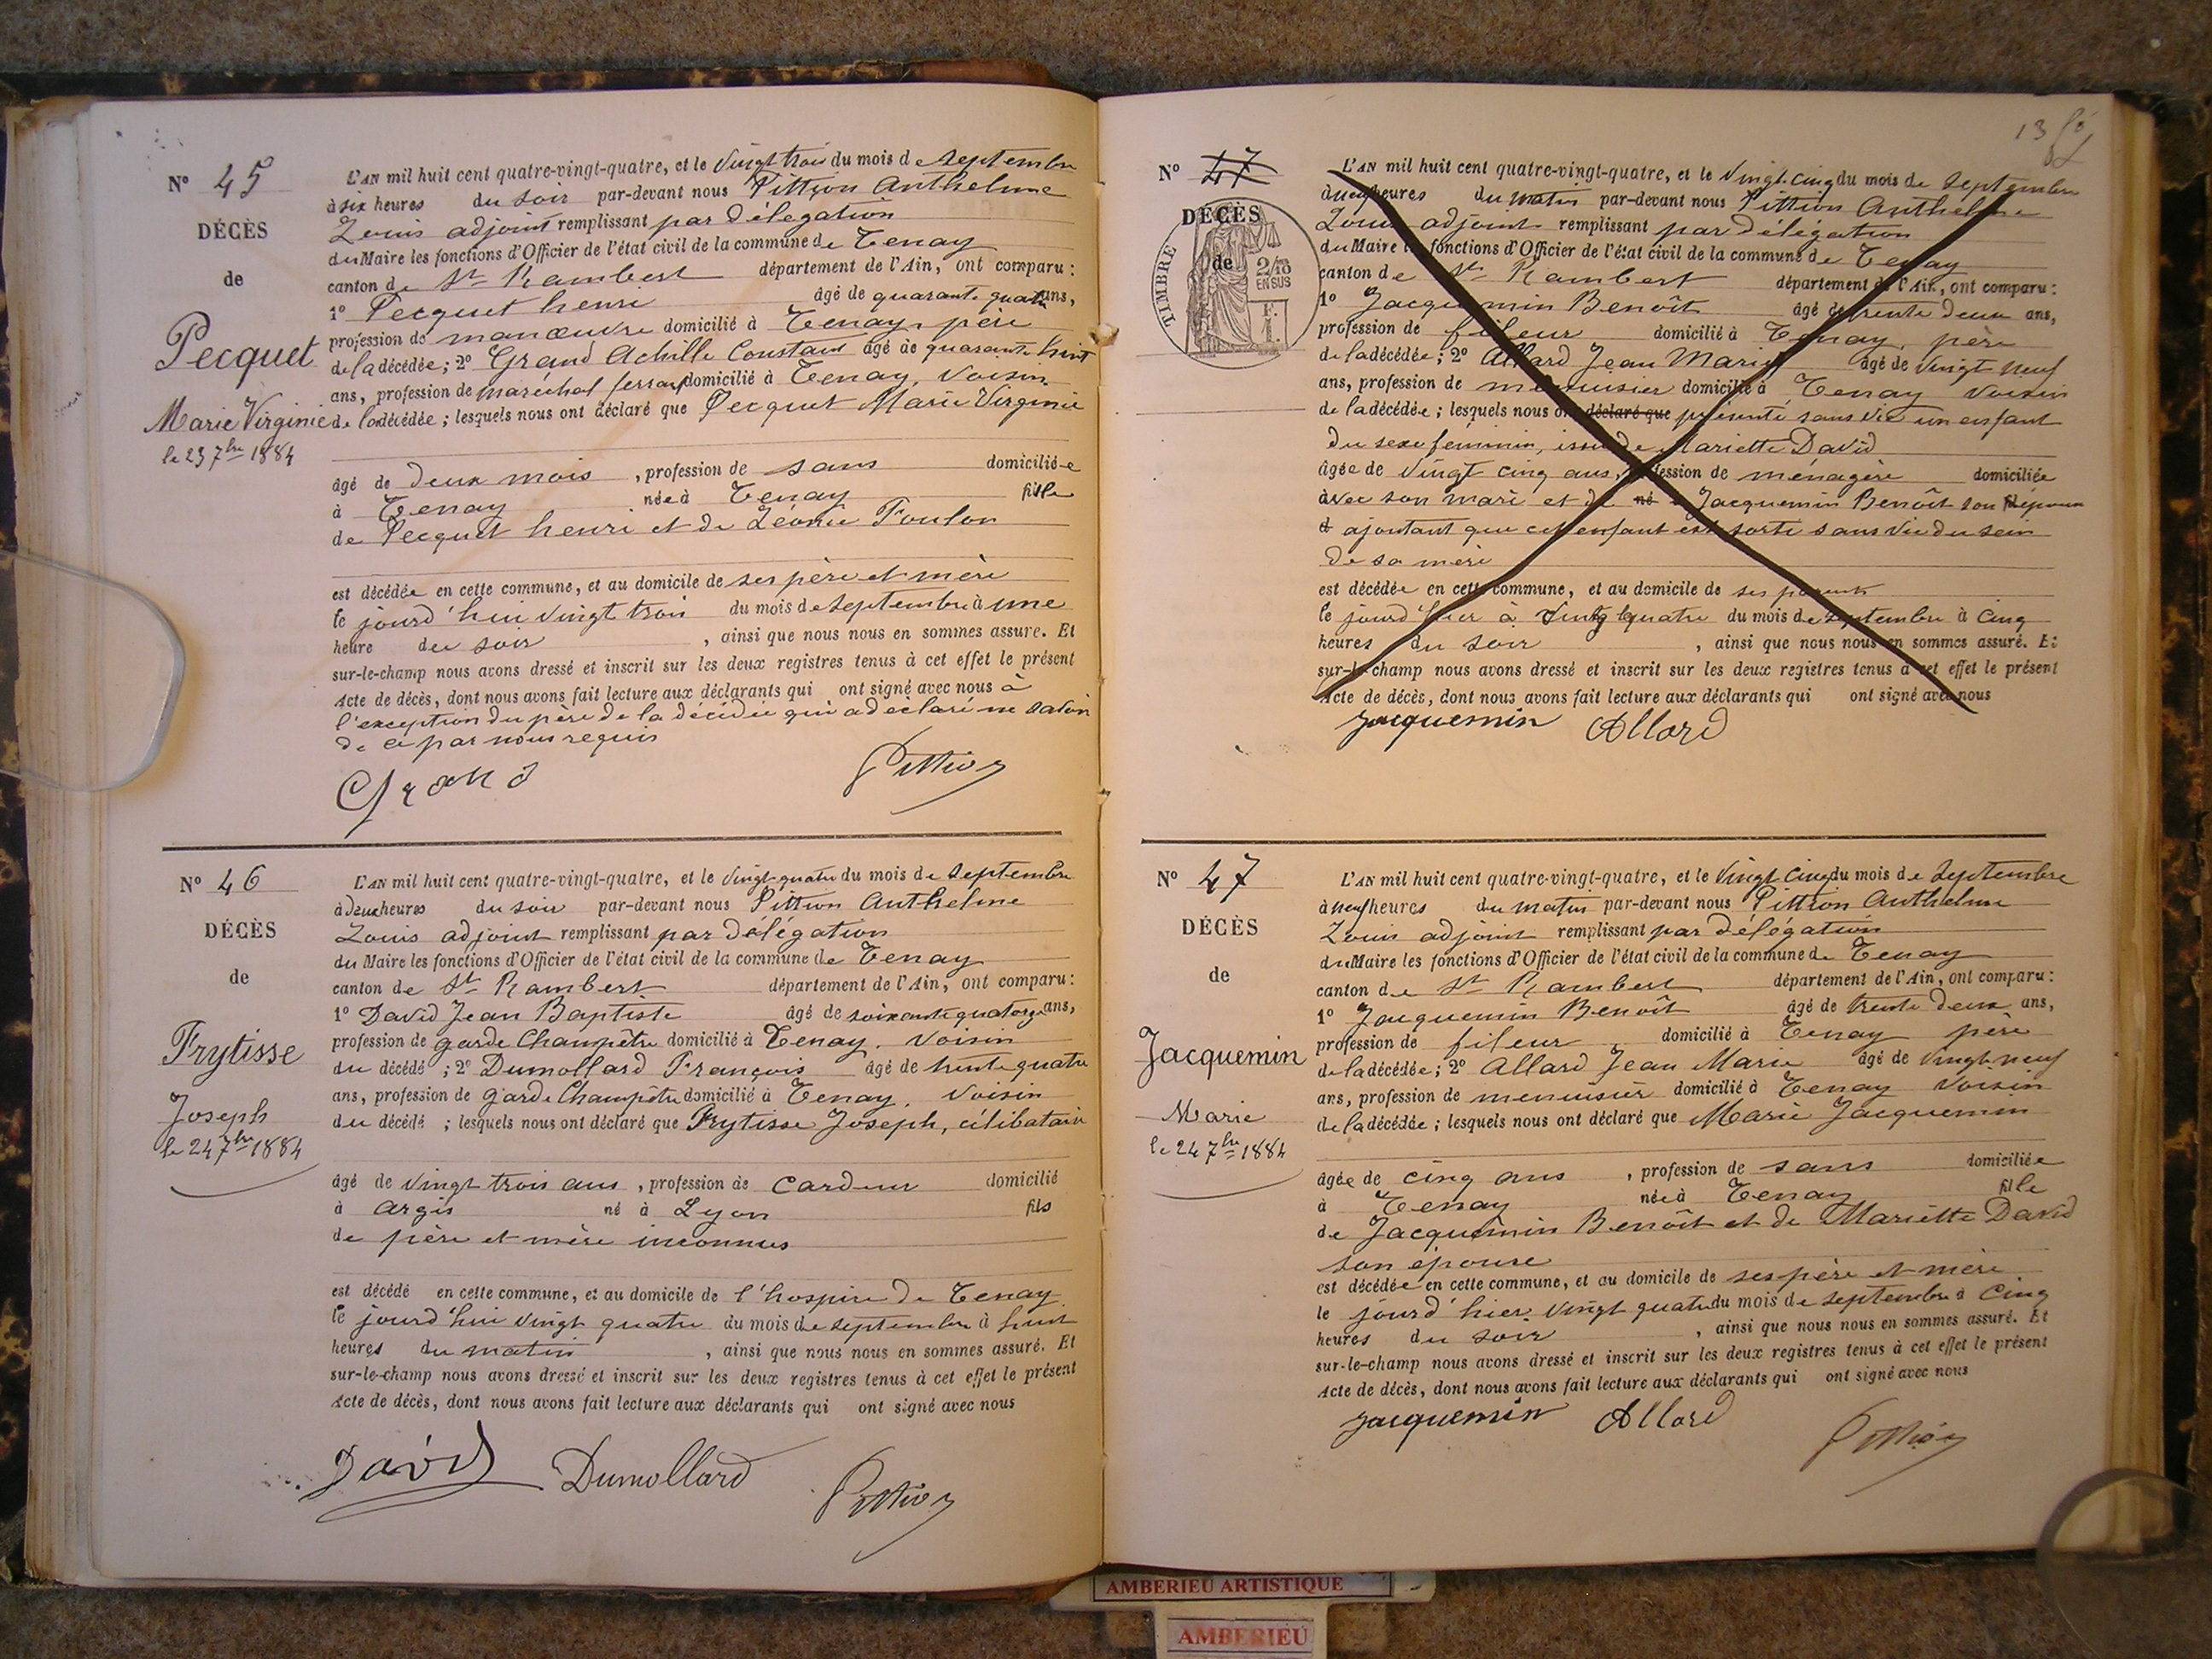 N° 45
DÉCÈS
de
Pecquet
Marie Virginie
le 23 7bre 1884
L'AN mil huit cent quatre-vingt-quatre, et le vingt trois du mois de septembre
à six heures du soir par-devant nous Pittion Anthelme
Louis adjoint remplissant par délégation
du Maire les fonctions d'Officier de l'état civil de la commune de Tenay
canton de St Rambert département de l'Ain, ont comparu :
1° Pecquet henri âgé de quarante quatre ans,
profession de manœuvre domicilié à Tenay, père
de la décédée ; 2° Grand Achille Constant âgé de quarante huit
ans, profession de maréchal ferrant domicilié à Tenay, voisin
de la décédée ; lesquels nous ont déclaré que Pecquet Marie Virginie
âgé de deux mois , profession de sans domiciliée
à Tenay née à Tenay fille
de Pecquet henri et de Léonie Foulon
est décédée en cette commune, et au domicile de ses père et mère
le jourd'hui vingt trois du mois de septembre à une
heure du soir , ainsi que nous nous en sommes assuré. Et
sur-le-champ nous avons dressé et inscrit sur les deux registres tenus à cet effet le présent
Acte de décès, dont nous avons fait lecture aux déclarants qui ont signé avec nous à
l'exception du père de la décédée qui a déclaré ne savoir
de ce par nous requis
Grand Pittion
N° 46
DÉCÈS
de
Frytisse
Joseph
le 24 7bre 1884
L'AN mil huit cent quatre-vingt-quatre, et le vingt quatre du mois de septembre
à deux heures du soir par-devant nous Pittion Anthelme
Louis adjoint remplissant par délégation
du Maire les fonctions d'Officier de l'état civil de la commune de Tenay
canton de St Rambert département de l'Ain, ont comparu :
1° David Jean Baptiste âgé de soixante quatorze ans,
profession de garde Champêtre domicilié à Tenay, voisin
du décédé ; 2° Dumollard François âgé de trente quatre
ans, profession de garde Champêtre domicilié à Tenay, voisin
du décédé ; lesquels nous ont déclaré que Frytisse Joseph, célibataire
âgé de vingt trois ans , profession de cardeur domicilié
à Argis né à Lyon fils
de père et mère inconnus
est décédé en cette commune, et au domicile de l'hospice de Tenay
le jourd'hui vingt quatre du mois de septembre à huit
heures du matin , ainsi que nous nous en sommes assuré. Et
sur-le-champ nous avons dressé et inscrit sur les deux registres tenus à cet effet le présent
Acte de décès, dont nous avons fait lecture aux déclarants qui ont signé avec nous
David Dumollard Pittion
13
N° 47
DÉCÈS
de
TIMBRE
2/10
EN SUS
F.
1.
L'AN mil huit cent quatre-vingt-quatre, et le vingt cinq du mois de septembre
à neuf heures du matin par-devant nous Pittion Anthelme
Louis adjoint remplissant par délégation
du Maire les fonctions d'Officier de l'état civil de la commune de Tenay
canton de St Rambert département de l'Ain, ont comparu :
1° Jacquemin Benoît âgé de trente deux ans,
profession de fileur domicilié à Tenay, père
de la décédée ; 2° Allard Jean Marie âgé de vingt neuf
ans, profession de menuisier domicilié à Tenay voisin
de la décédée ; lesquels nous ont déclaré que présenté sans vie un enfant
du sexe féminin, issu de Mariette David
âgée de vingt cinq ans, profession de ménagère domiciliée
avec son mari et de né à Jacquemin Benoît son époux
et ajoutant que cet enfant est sorti sans vie du sein
de sa mère
est décédée en cette commune, et au domicile de ses parents
le jourd'hier à vingt quatre du mois de septembre à cinq
heures du soir , ainsi que nous nous en sommes assuré. Et
sur-le-champ nous avons dressé et inscrit sur les deux registres tenus à cet effet le présent
Acte de décès, dont nous avons fait lecture aux déclarants qui ont signé avec nous
Jacquemin Allard
N° 47
DÉCÈS
de
Jacquemin
Marie
le 24 7bre 1884
L'AN mil huit cent quatre-vingt-quatre, et le vingt cinq du mois de septembre
à neuf heures du matin par-devant nous Pittion Anthelme
Louis adjoint remplissant par délégation
du Maire les fonctions d'Officier de l'état civil de la commune de Tenay
canton de St Rambert département de l'Ain, ont comparu :
1° Jacquemin Benoît âgé de trente deux ans,
profession de fileur domicilié à Tenay père
de la décédée ; 2° Allard Jean Marie âgé de vingt neuf
ans, profession de menuisier domicilié à Tenay voisin
de la décédée ; lesquels nous ont déclaré que Marie Jacquemin
âgée de cinq ans , profession de sans domiciliée
à Tenay née à Tenay fille
de Jacquemin Benoît et de Mariette David
son épouse
est décédée en cette commune, et au domicile de ses père et mère
le jourd'hier vingt quatre du mois de septembre à cinq
heures du soir , ainsi que nous nous en sommes assuré. Et
sur-le-champ nous avons dressé et inscrit sur les deux registres tenus à cet effet le présent
Acte de décès, dont nous avons fait lecture aux déclarants qui ont signé avec nous
Jacquemin Allard Pittion
AMBERIEU ARTISTIQUE
AMBERIEU